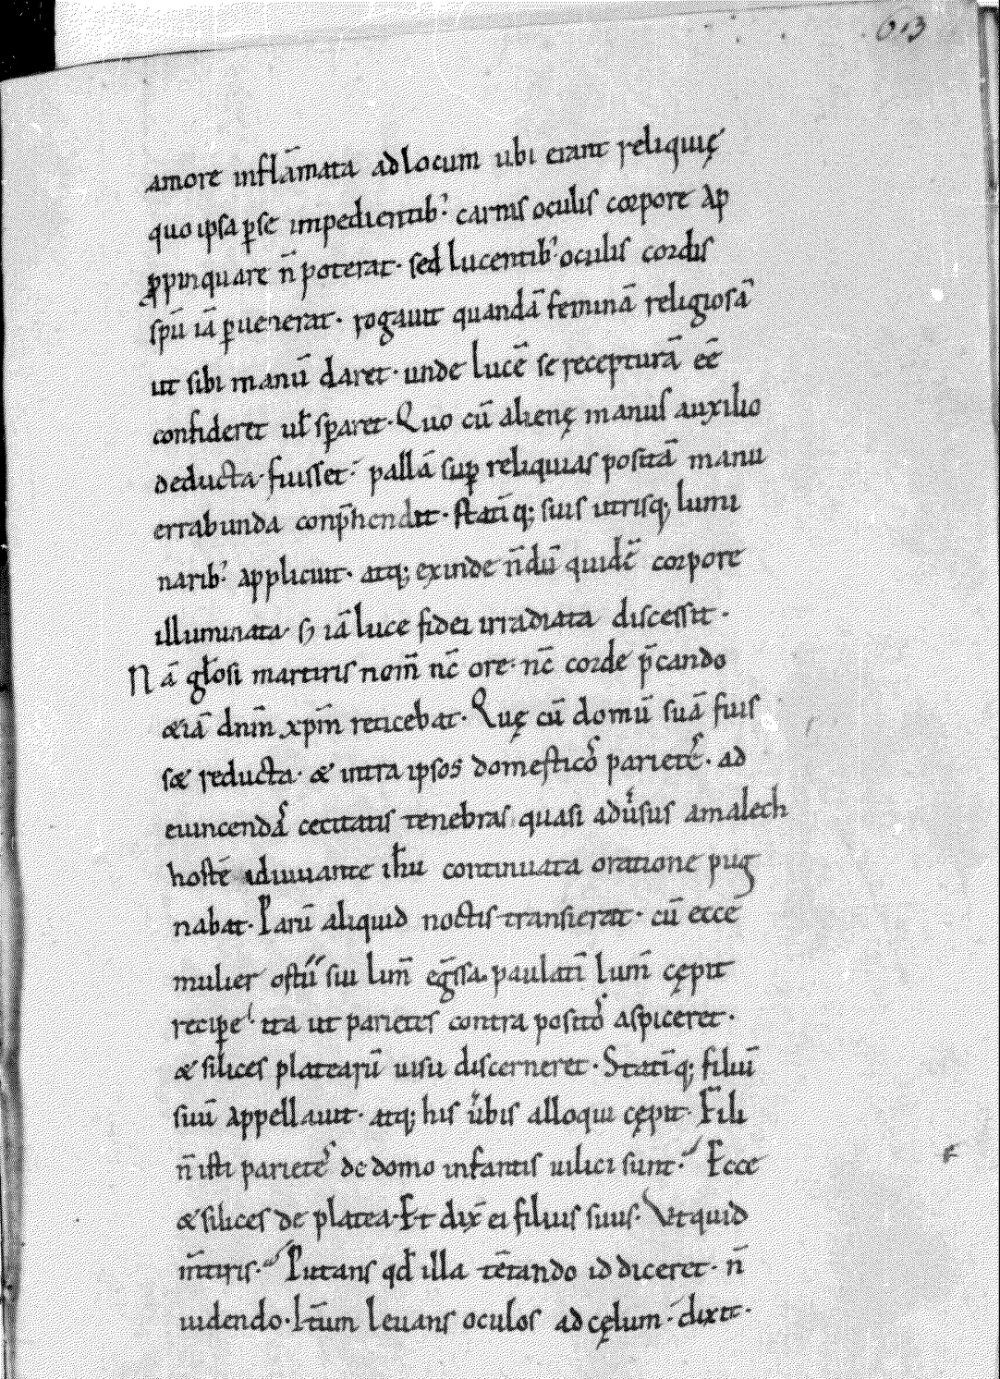 613
amore inflāmata ad locum ubi erant reliquię
quo ipsa ꝑse impedientib; carnis oculis corpore ap
ꝓpinquare n̄ poterat · sed lucentib; oculis cordis
spū iā ꝑuenerat · rogauit quandā feminā religiosā
ut sibi manū daret · unde lucē se recepturā eē
confideret uƚ sꝑaret · Quo cū alienę manus auxilio
deducta · fuisset · pallā suꝑ reliquias positā manu
errabunda conp̄hendit · statīq; suis utrisq; lumi
narib; applicuit · atq; exinde n̄dū quidē corpore
illuminata · s; iā luce fidei irradiata discessit ·
Nā gƚosi martiris nom̄ nc̄ ore · nc̄ corde p̄cando
&iā dnm̄ xpm̄ reticebat · Quę cū domū suā fuis
s& reducta · & intra ipsos domesticos parietes · ad
euincendas cecitatis tenebras quasi adūsus amalech
hostē adiuuante ihu continuata oratione pug
nabat · Parū aliquid noctis transierat · cū ecce
mulier ostii sui lim̄ eḡssa paulatī lum̄ cępit
reciꝑe · ita ut parietes contra positos aspiceret ·
& silices platearū uisu discerneret · Statīq; filiū
suū appellauit · atq; his ūbis alloqui cępit · Fili
n̄ isti parietes de domo infantis uilici sunt · Ecce
& silices de platea · Et dix̄ ei filius suus · Utquid
m̄tiris · Putans qd̄ illa tēt̄ando id diceret · n̄
uidendo · It̄um leuans oculos ad cęlum · dixit ·